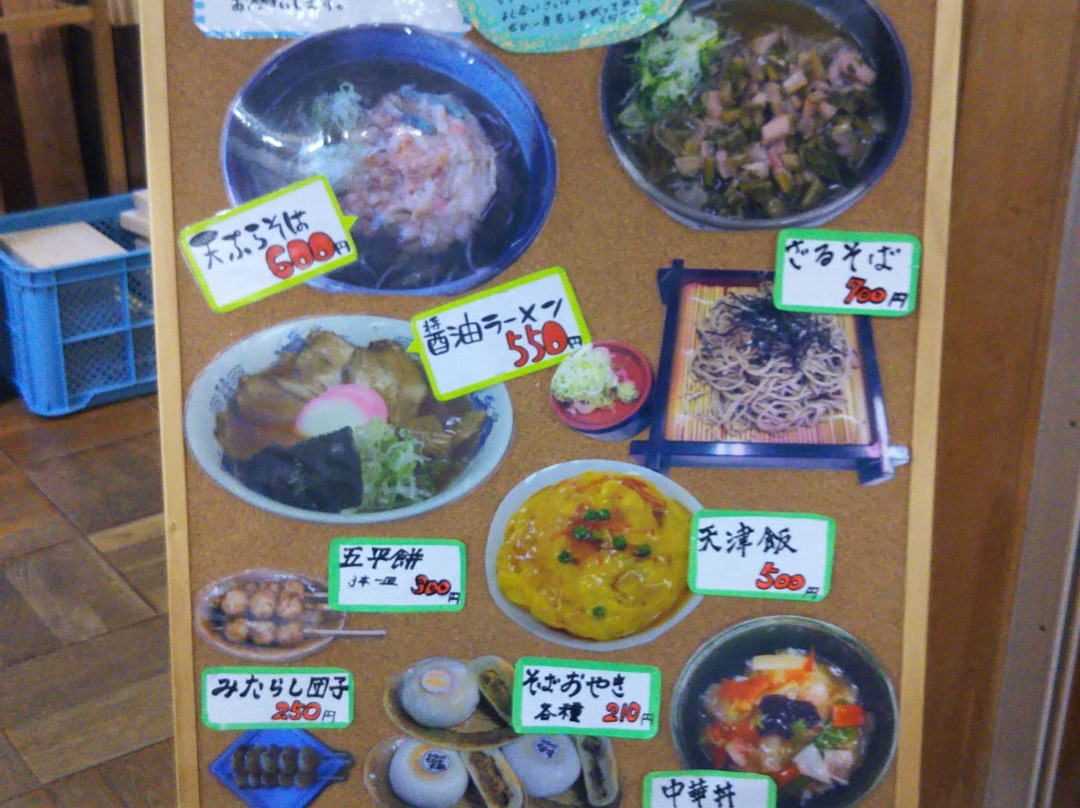 お願いします。
天ぷらそば
600円
ざるそば
700円
醤油ラーメン
550円
天津飯
500円
五平餅
3本一皿 300円
みたらし団子
250円
そばおやき
各種 210円
中華丼